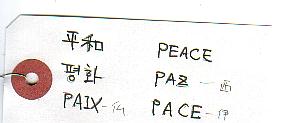 平和 PEACE
평화 PAZ-西
PAIX-仏 PACE-伊